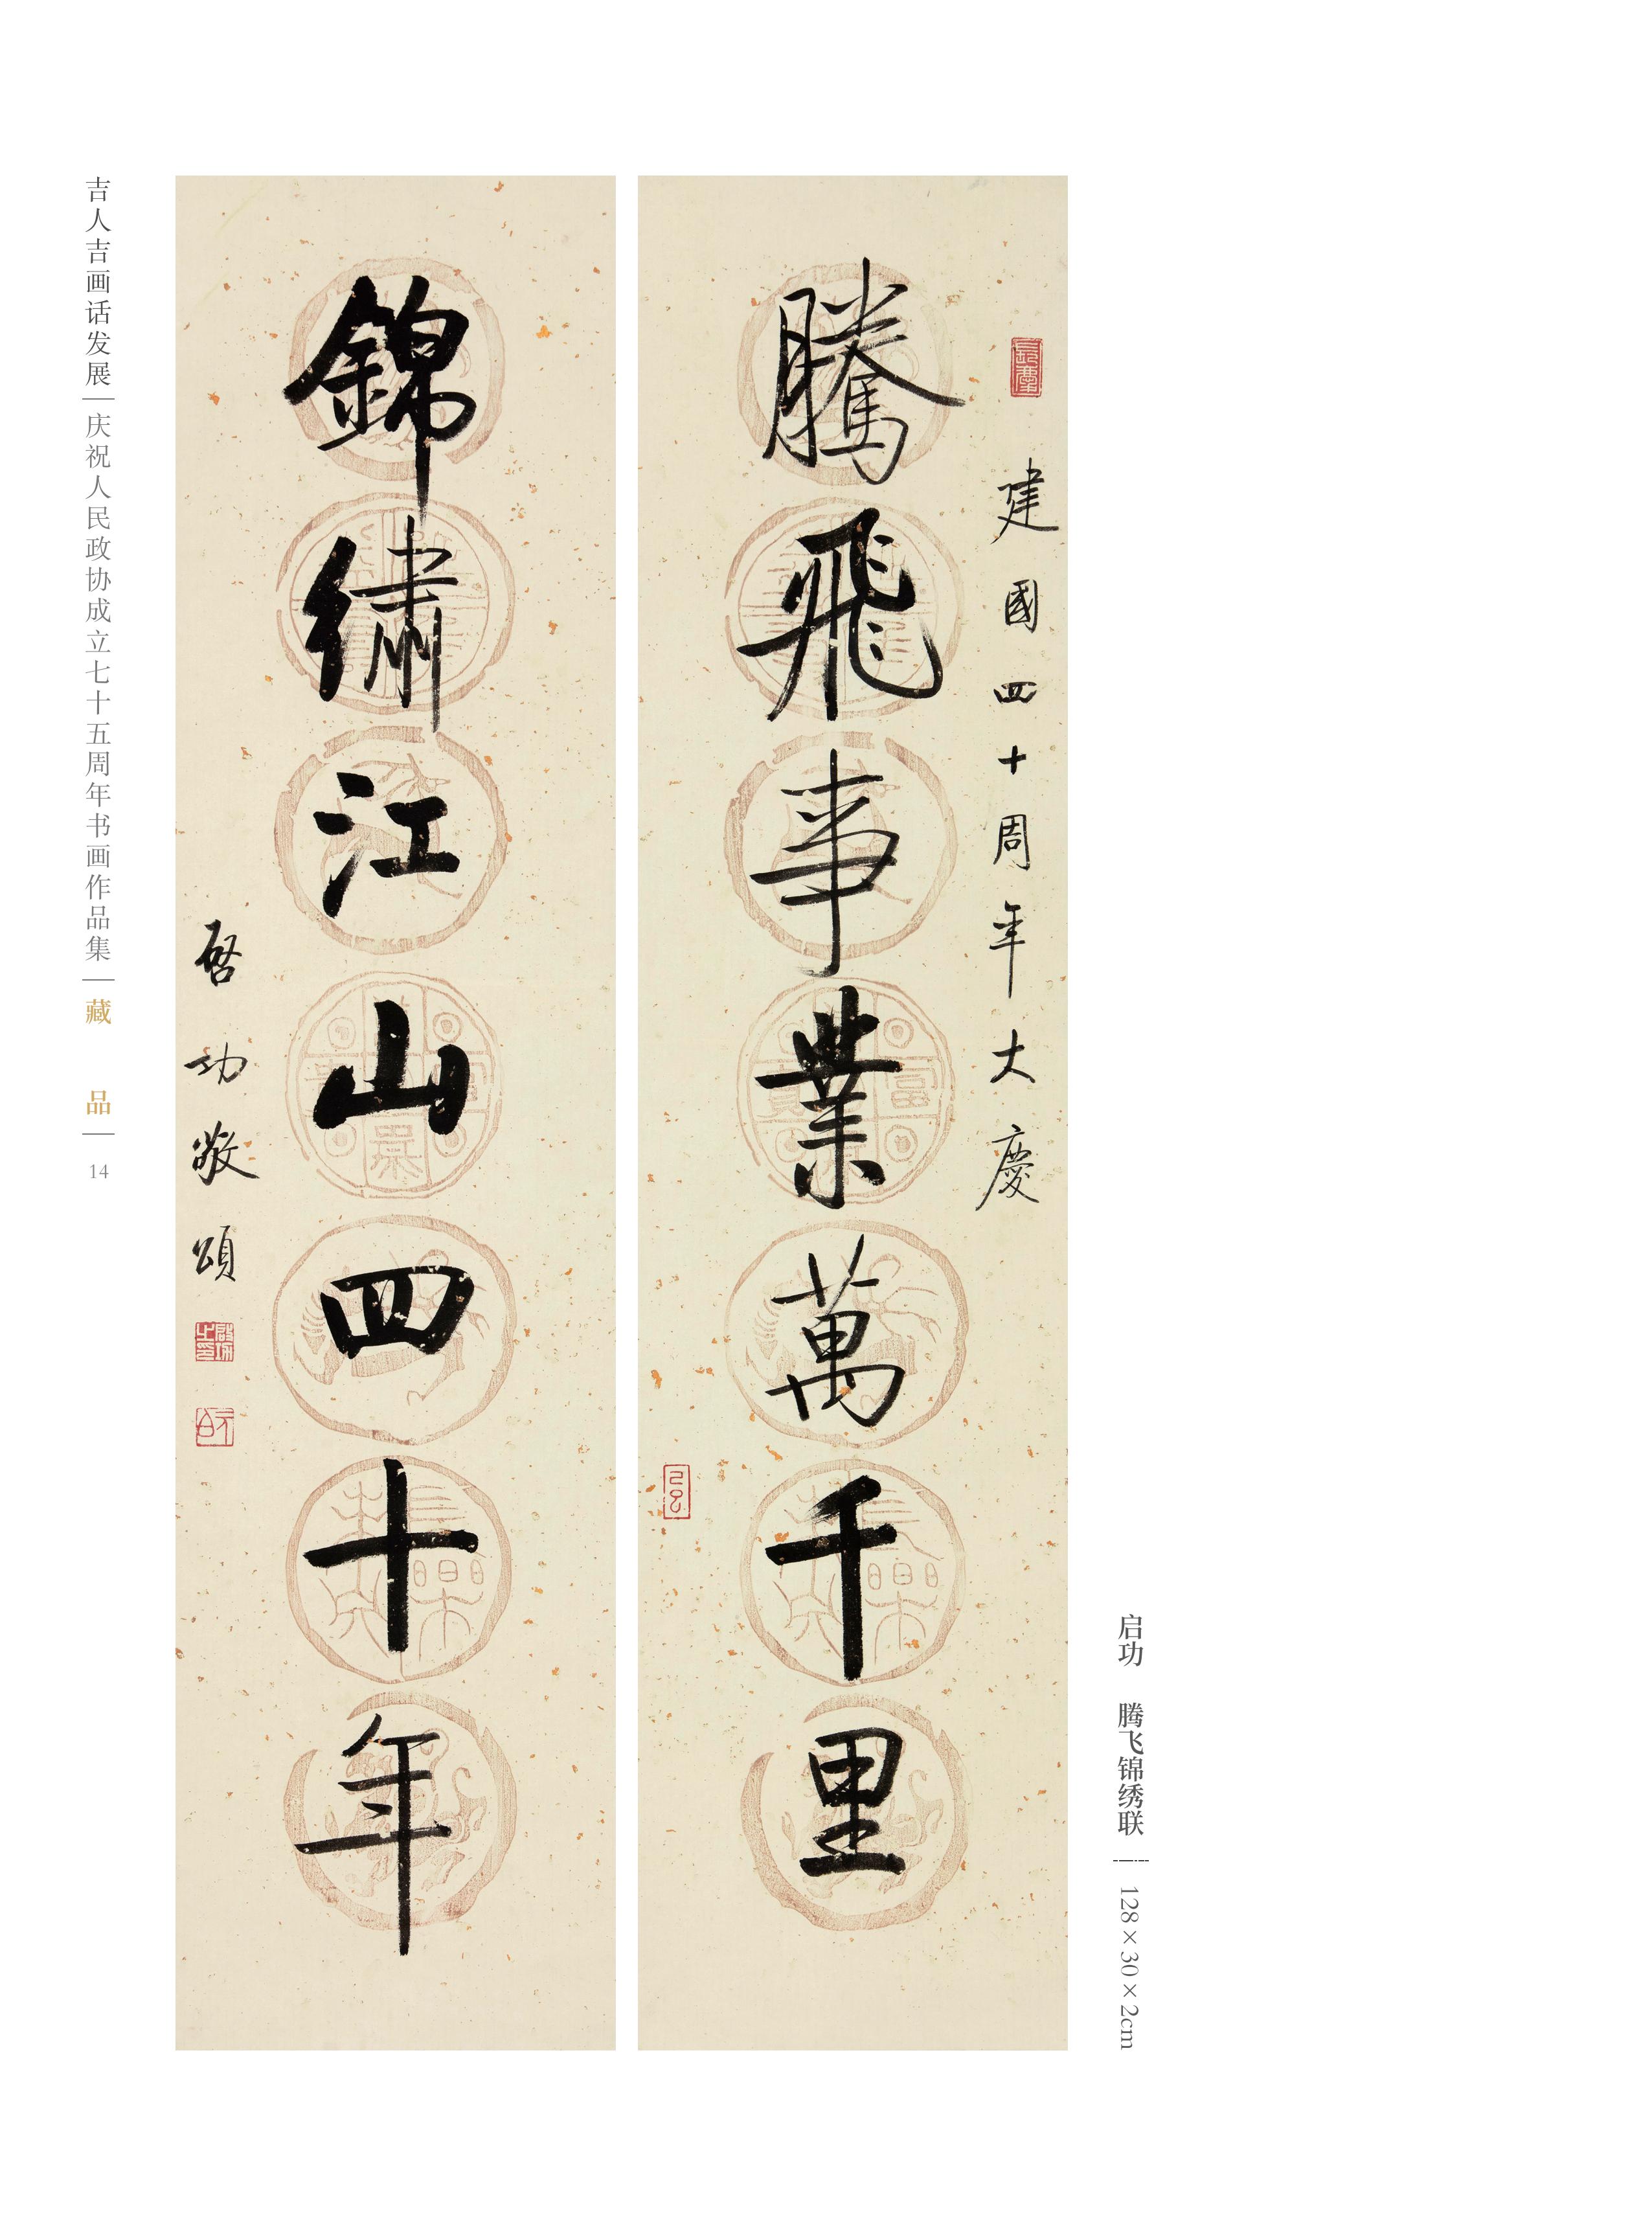 建國四十周年大慶
騰飛事業萬千里
錦繡江山四十年
啓功敬頌
启功 腾飞锦绣联
128×30×2cm
吉人吉画话发展
庆祝人民政协成立七十五周年书画作品集
藏品
14